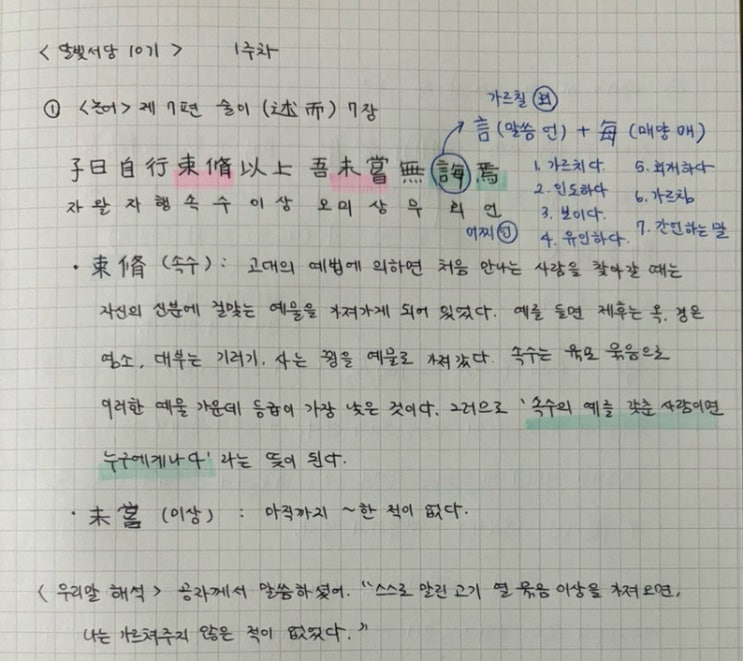 <달빛서당 10기> 1주차
① <논어> 제 7편 술이 (述而) 7장
가르칠 회
言 (말씀 언) + 每 (매양 매)
子曰自行束脩以上 吾未嘗無誨焉
자 왈 자 행 속 수 이 상 오 미 상 무 회 언
어찌 언
1. 가르치다.
2. 인도하다
3. 보이다.
4. 유인하다.
5. 회개하다
6. 가르침
7. 간언하는 말
· 束脩 (속수) : 고대의 예법에 의하면 처음 만나는 사람을 찾아갈 때는
자신의 신분에 걸맞는 예물을 가져가게 되어 있었다. 예를 들면 제후는 옥, 경은
염소, 대부는 기러기, 사는 꿩을 예물로 가져 갔다. 속수는 육포 묶음으로
이러한 예물 가운데 등급이 가장 낮은 것이다. 그러므로 '속수의 예를 갖춘 사람이면
누구에게나 다' 라는 뜻이 된다.
· 未嘗 (이상) : 아직까지 ~한 적이 없다.
<우리말 해석> 공자께서 말씀하셨어. "스스로 말린 고기 열 묶음 이상을 가져오면,
나는 가르쳐주지 않은 적이 없었다."